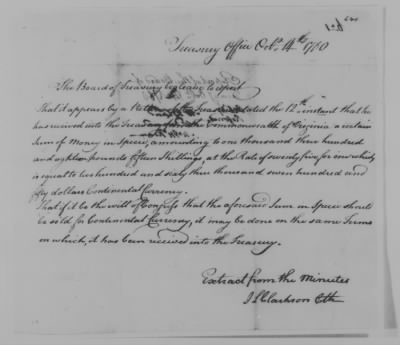 No 1
Treasury Office Octr. 14th 1780
The Board of Treasury beg leave to report
That it appears by a Letter of the Treasurer dated the 12th instant that he
has received into the Treasury from the Commonwealth of Virginia a certain
Sum of Money in Specie, amounting to one thousand three hundred
and pounds fifteen Shillings, at the Rate of seventy five for one which
is equal to hundred and sixty three thousand seven hundred and
fifty dollars Continental Currency.
That if it be the will of Congress that the aforesaid Sum in Specie should
be sold for Continental Currency, it may be done on the same Terms
on which it has been received into the Treasury.
Extract from the Minutes
Clarkson